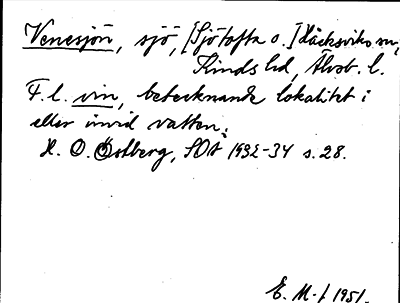 Venesjön, sjö, [Sjötofta o.] Håcksviks sn,
Kinds hd, Älvsb. l.
F. l. vin, betecknande lokalitet i
eller invid vatten.
H. O. Östberg, SOÅ 1932-34 s. 28.
E. M-f 1951.